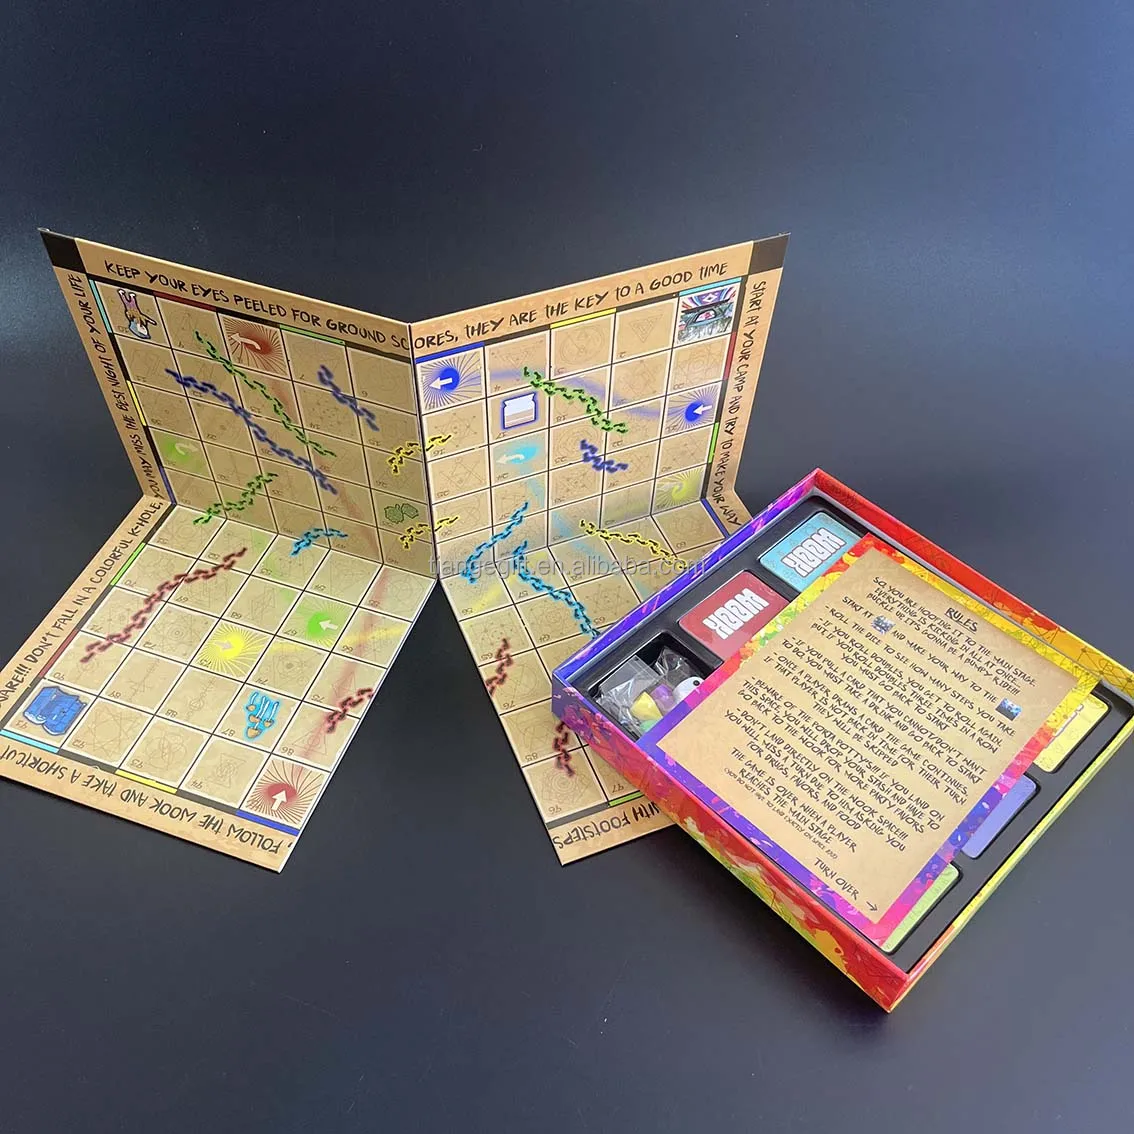 KEEP YOUR EYES PEELED FOR GROUND SCORES, THEY ARE THE KEY TO A GOOD TIME
START AT YOUR CAMP AND TRY TO MAKE YOUR WAY
YOU MAY MISS THE BEST NIGHT OF YOUR LIFE
DON'T FALL IN A COLORFUL K-HOLE,
FOLLOW THE WOOK AND TAKE A SHORTCUT
FOOTSTEPS
tiangegift.en.alibaba.com
WOOK
WOOK
RULES
SO, YOU ARE HOOFING IT TO THE MAIN STAGE.
EVERYTHING IS KICKING IN ALL AT ONCE...
BUCKLE UP, IT'S GONNA BE A BUMPY RIDE!!!!
START AT AND MAKE YOUR WAY TO THE
ROLL THE DICE TO SEE HOW MANY STEPS YOU TAKE
- IF YOU ROLL DOUBLES, YOU GET TO ROLL AGAIN.
BUT IF YOU ROLL DOUBLES THREE TIMES IN A ROW
YOU MUST GO BACK TO START
- IF YOU PULL A CARD THAT YOU CANNOT/DON'T WANT
TO DO, YOU MUST TAKE A DRINK AND GO BACK TO START
ONCE A PLAYER DRAWS A CARD THE GAME CONTINUES,
IF THAT PLAYER IS NOT BACK IN TIME FOR THEIR TURN
THEY WILL BE SKIPPED
- BEWARE OF THE PORTA POTTYS!!! IF YOU LAND ON
THIS SPACE, YOU WILL DROP YOUR STASH AND HAVE TO
GO BACK TO THE WOOK FOR MORE PARTY FAVORS
- DON'T LAND DIRECTLY ON THE WOOK SPACE!!!
YOU WILL MISS A TURN DUE TO HIM ASKING YOU
FOR DRUGS, FAVORS, AND FOOD
THE GAME IS OVER WHEN A PLAYER
REACHES THE MAIN STAGE
(YOU DO NOT HAVE TO LAND EXACTLY ON SPACE 100)
TURN OVER →